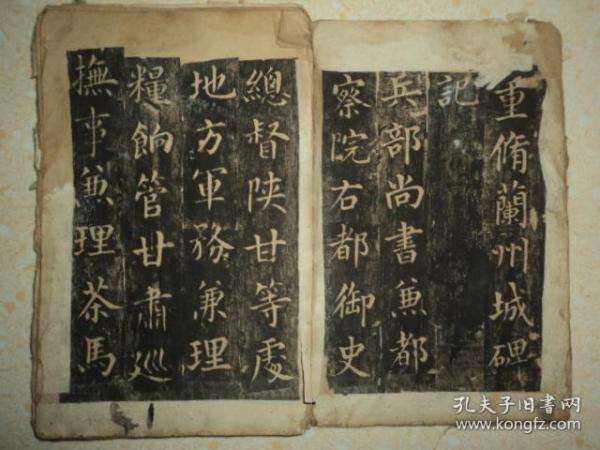 重脩蘭州城碑
記
兵部尚書兼都
察院右都御史
總督陕甘等處
地方軍務兼理
糧餉管甘肅巡
撫事兼理茶馬
孔夫子旧书网
www.kongfz.com